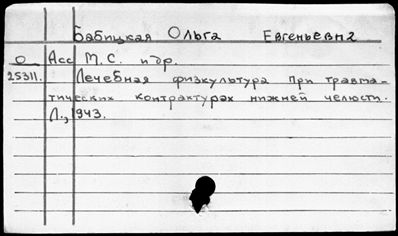 Бабицкая Ольга Евгеньевна
О Асс М.С. и др.
25311. Лечебная физкультура при травма-
тических контрактурах нижней челюсти.
Л., 1943.